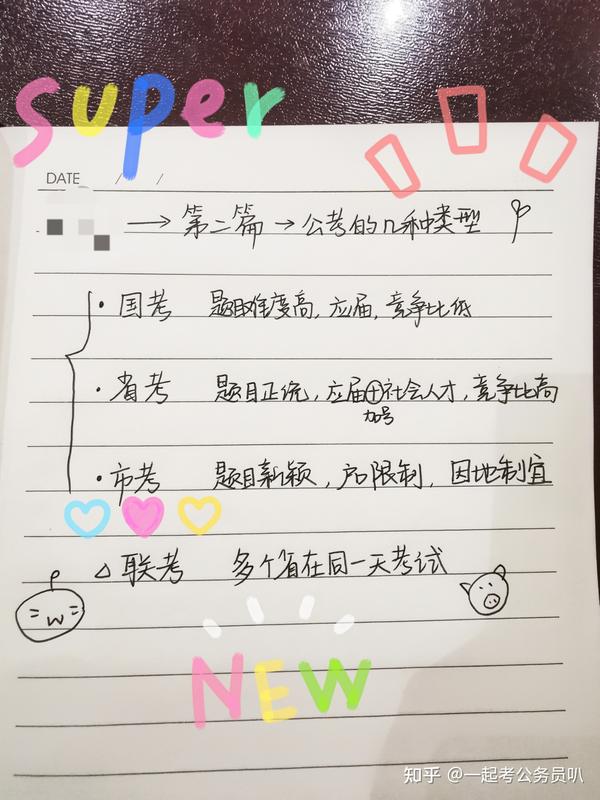 super
DATE / /
→ 第二篇 → 公考的几种类型
• 国考 题目难度高, 应届, 竞争比低
• 省考 题目正统, 应届+社会人才, 竞争比高
加号
• 市考 题目新颖, 户口限制, 因地制宜
△ 联考 多个省在同一天考试
NEW
知乎 @一起考公务员叭